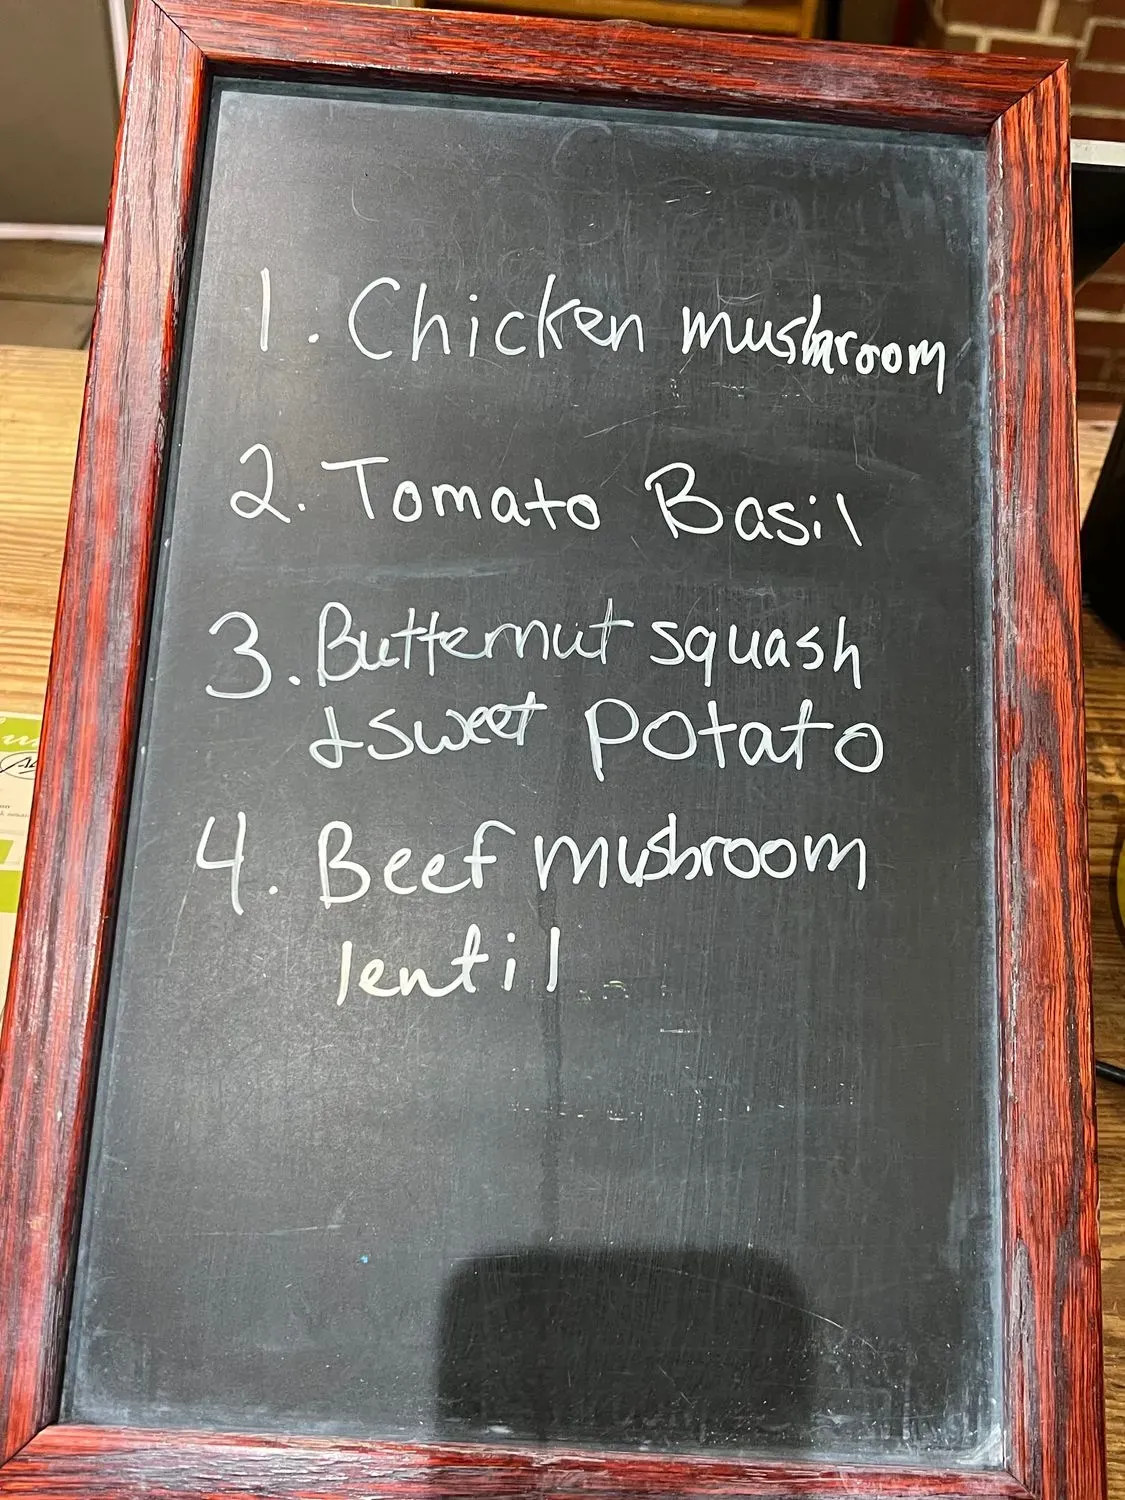 1. Chicken mushroom
2. Tomato Basil
3. Butternut squash
& sweet potato
4. Beef mushroom
lentil